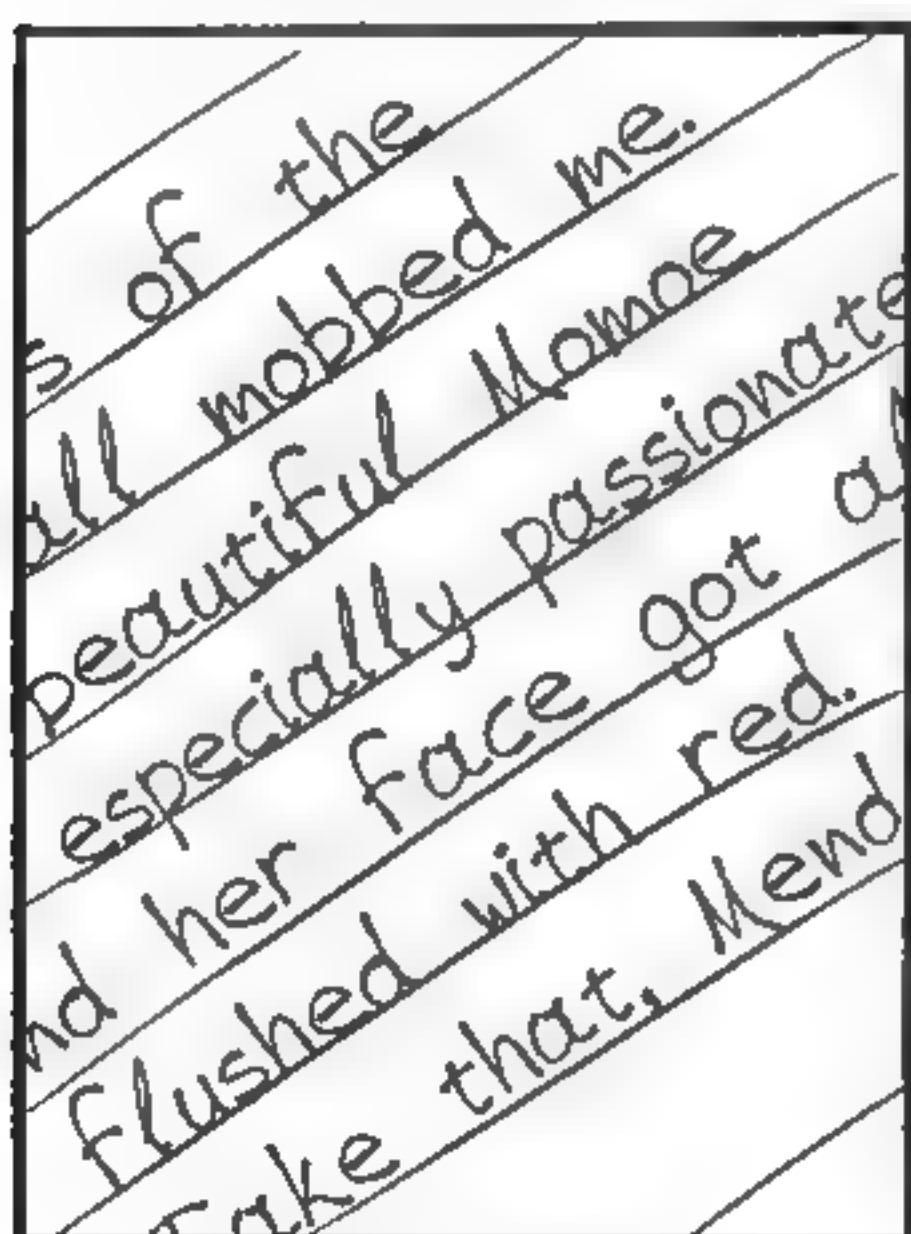 s of the
all mobbed me.
peautiful Momoe
especially passionate
nd her face got al
flushed with red.
Take that, Mend